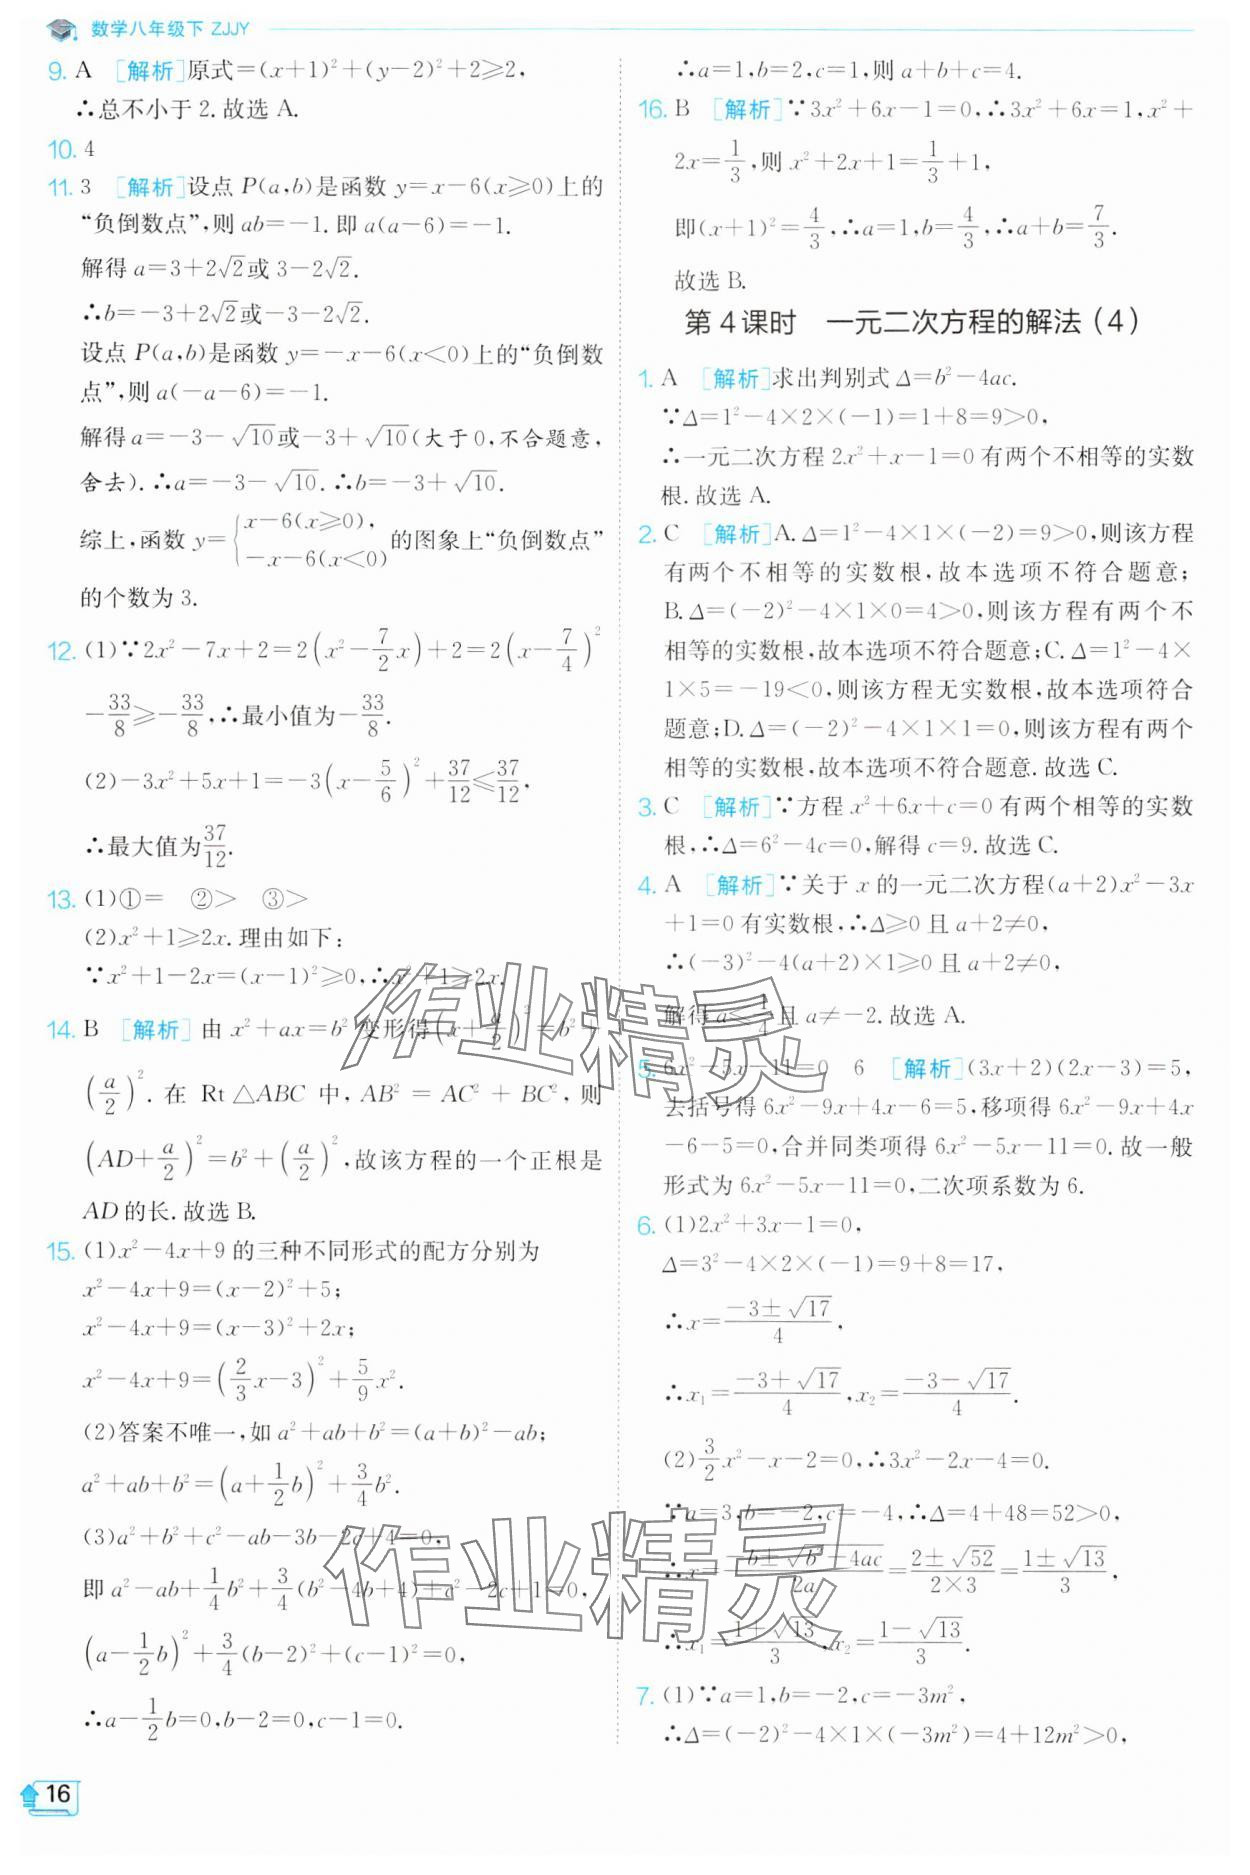 数学八年级下 ZJJY
9. A [解析]原式=(x+1)²+(y-2)²+2≥2,
∴总不小于2.故选A.
10. 4
11. 3 [解析]设点P(a,b)是函数y=x-6(x≥0)上的
“负倒数点”,则ab=-1.即a(a-6)=-1.
解得a=3+2√2或3-2√2.
∴b=-3+2√2或-3-2√2.
设点P(a,b)是函数y=-x-6(x<0)上的“负倒数
点”,则a(-a-6)=-1.
解得a=-3-√10或-3+√10(大于0,不合题意,
舍去).∴a=-3-√10.∴b=-3+√10.
综上,函数y={x-6(x≥0), -x-6(x<0)的图象上“负倒数点”
的个数为3.
12. (1)∵2x²-7x+2=2(x²-7/2x)+2=2(x-7/4)²
-33/8≥-33/8,∴最小值为-33/8.
(2)-3x²+5x+1=-3(x-5/6)²+37/12≤37/12,
∴最大值为37/12.
13. (1)①= ②> ③>
(2)x²+1≥2x.理由如下:
∵x²+1-2x=(x-1)²≥0,∴x²+1≥2x.
14. B [解析]由x²+ax=b²变形得(x+a/2)²=b²+
(a/2)².在Rt△ABC中,AB²=AC²+BC²,则
(AD+a/2)²=b²+(a/2)²,故该方程的一个正根是
AD的长.故选B.
15. (1)x²-4x+9的三种不同形式的配方分别为
x²-4x+9=(x-2)²+5;
x²-4x+9=(x-3)²+2x;
x²-4x+9=(2/3x-3)²+5/9x².
(2)答案不唯一,如a²+ab+b²=(a+b)²-ab;
a²+ab+b²=(a+1/2b)²+3/4b².
(3)a²+b²+c²-ab-3b-2c+4=0,
即a²-ab+1/4b²+3/4(b²-4b+4)+c²-2c+1=0,
(a-1/2b)²+3/4(b-2)²+(c-1)²=0,
∴a-1/2b=0,b-2=0,c-1=0.
16
∴a=1,b=2,c=1,则a+b+c=4.
16. B [解析]∵3x²+6x-1=0,∴3x²+6x=1,x²+
2x=1/3,则x²+2x+1=1/3+1,
即(x+1)²=4/3,∴a=1,b=4/3,∴a+b=7/3.
故选B.
第4课时 一元二次方程的解法(4)
1. A [解析]求出判别式Δ=b²-4ac.
∵Δ=1²-4×2×(-1)=1+8=9>0,
∴一元二次方程2x²+x-1=0有两个不相等的实数
根.故选A.
2. C [解析]A.Δ=1²-4×1×(-2)=9>0,则该方程
有两个不相等的实数根,故本选项不符合题意;
B.Δ=(-2)²-4×1×0=4>0,则该方程有两个不
相等的实数根,故本选项不符合题意;C.Δ=1²-4×
1×5=-19<0,则该方程无实数根,故本选项符合
题意;D.Δ=(-2)²-4×1×1=0,则该方程有两个
相等的实数根,故本选项不符合题意.故选C.
3. C [解析]∵方程x²+6x+c=0有两个相等的实数
根,∴Δ=6²-4c=0,解得c=9.故选C.
4. A [解析]∵关于x的一元二次方程(a+2)x²-3x
+1=0有实数根,∴Δ≥0且a+2≠0,
∴(-3)²-4(a+2)×1≥0且a+2≠0,
解得a≤1/4且a≠-2.故选A.
5. 6x²-5x-11=0 6 [解析](3x+2)(2x-3)=5,
去括号得6x²-9x+4x-6=5,移项得6x²-9x+4x
-6-5=0,合并同类项得6x²-5x-11=0.故一般
形式为6x²-5x-11=0,二次项系数为6.
6. (1)2x²+3x-1=0,
Δ=3²-4×2×(-1)=9+8=17,
∴x=(-3±√17)/4,
∴x₁=(-3+√17)/4,x₂=(-3-√17)/4.
(2)3/2x²-x-2=0,∴3x²-2x-4=0.
∵a=3,b=-2,c=-4,∴Δ=4+48=52>0,
∴x=(-b±√(b²-4ac))/2a=(2±√52)/(2×3)=(1±√13)/3.
∴x₁=(1+√13)/3,x₂=(1-√13)/3.
7. (1)∵a=1,b=-2,c=-3m²,
∴Δ=(-2)²-4×1×(-3m²)=4+12m²>0,
作业精灵
作业精灵